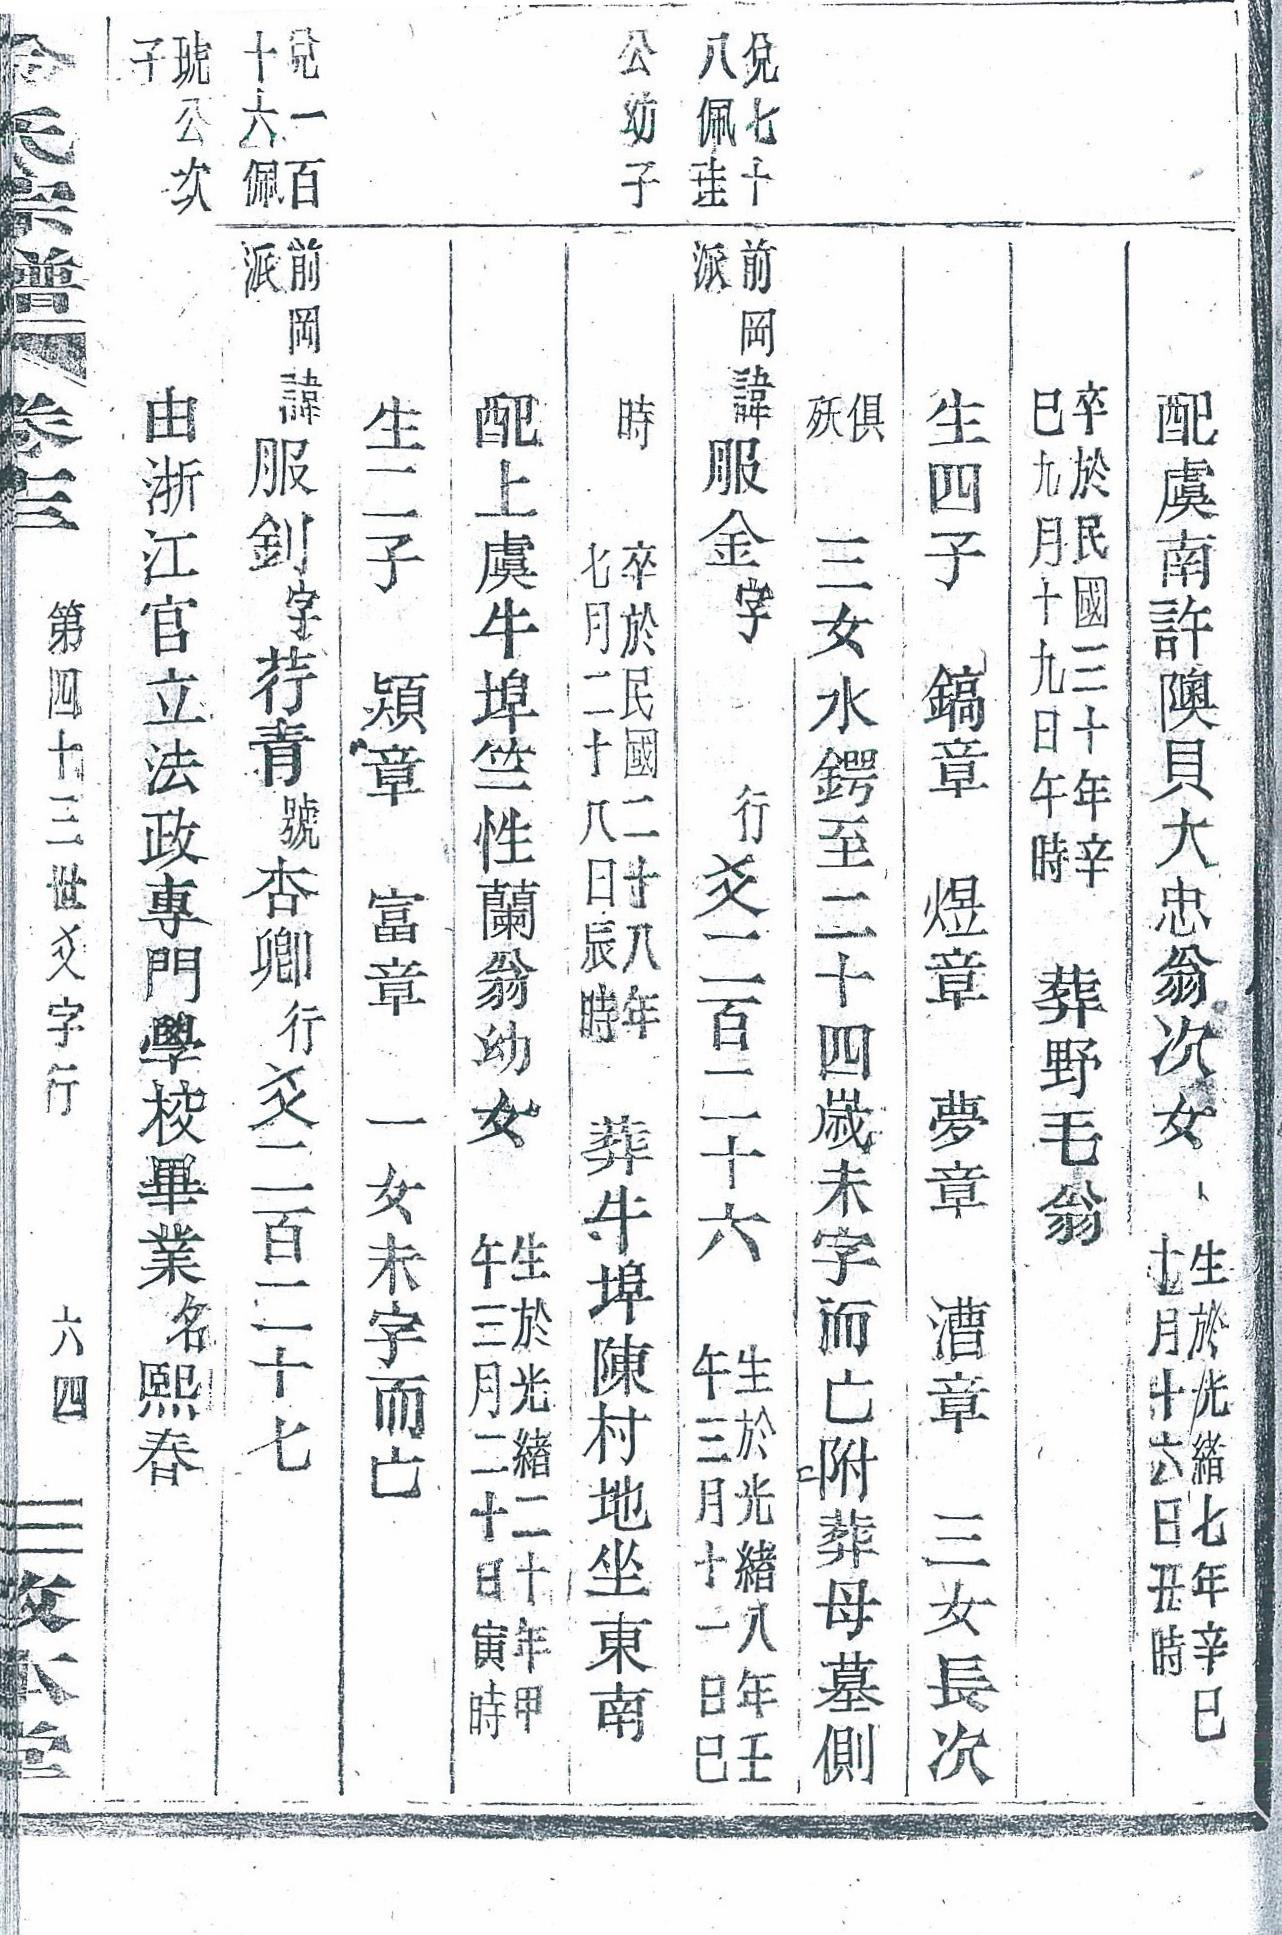 配虞南許隩貝大忠翁次女 生於光緒七年辛巳十月十六日丑時
卒於民國三十年辛巳九月十九日午時 葬野毛翁
生四子 鎬章 煜章 夢章 漕章 三女長次
俱殀 三女水鍔至二十四歲未字而亡附葬母墓側
兌七十八佩珪
前岡派諱服金字 行爻二百二十六 生於光緒八年壬午三月十一日巳
公幼子
時 卒於民國二十八年七月二十八日辰時 葬牛埠陳村地坐東南
配上虞牛埠竺性蘭翁幼女 生於光緒二十年甲午三月二十日寅時
生二子 熲章 富章 一女未字而亡
兌一百十六佩
前岡派諱服釗字荇青號杏卿行爻二百二十七
琥公次子
由浙江官立法政專門學校畢業名熙春
金氏宗譜 卷三 第四十三世爻字行 六四 敦本堂